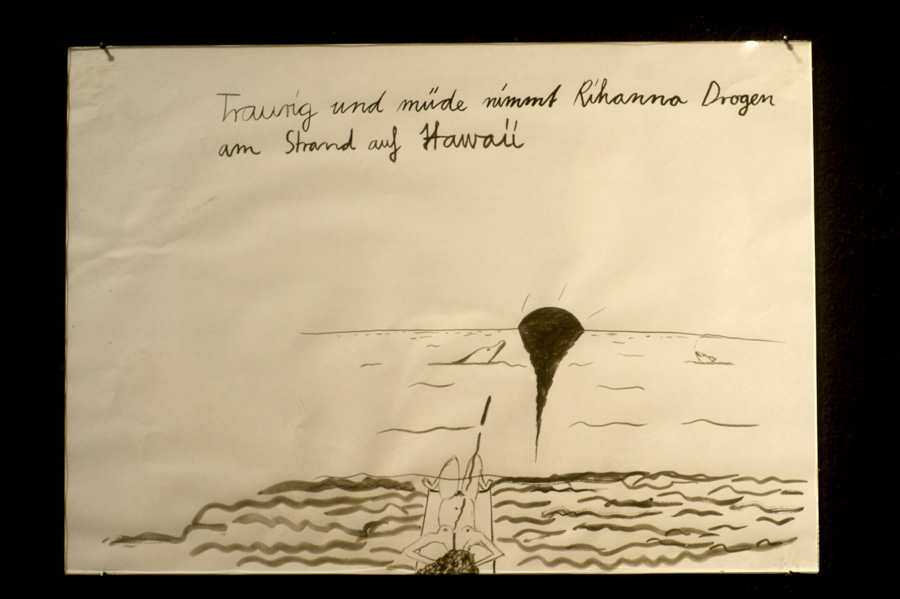 Traurig und müde nimmt Rihanna Drogen
am Strand auf Hawaii